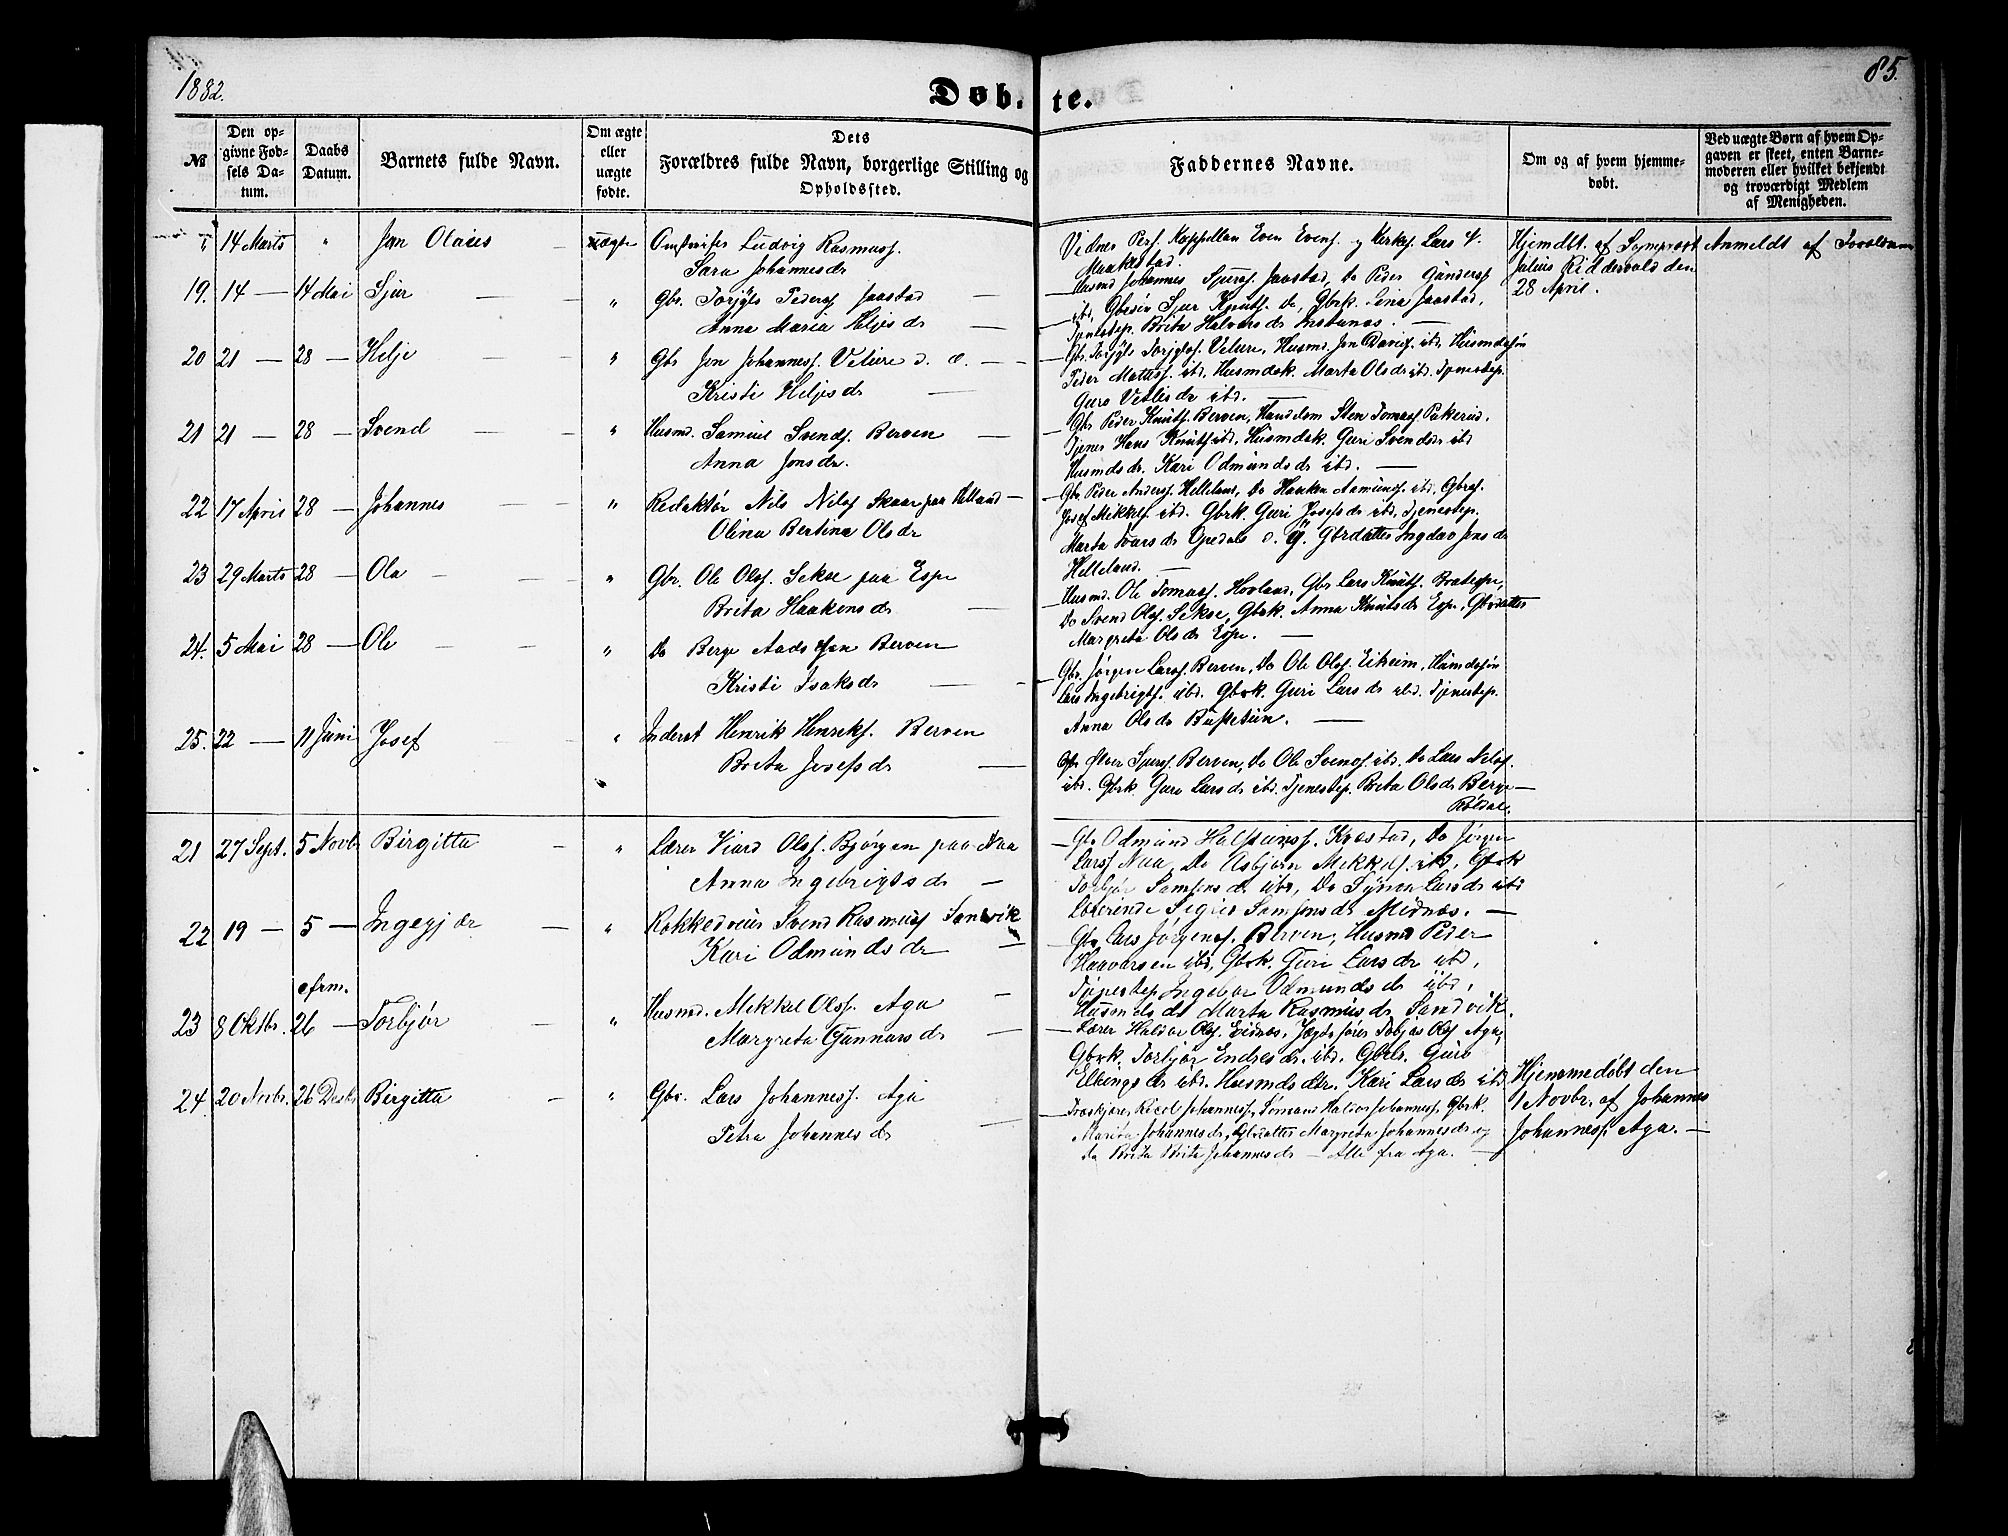 1882.
Døb- te.
85.
№
Den op-
givne Fød-
sels Da-
tum.
Daabs
Datum.
Barnets fulde Navn.
Om ægte
eller
uægte
fødte.
Dets
Forældres fulde Navn, borgerlige Stilling og
Opholdssted.
Faddernes Navne.
Om og af hvem hjemme-
døbt.
Ved uægte Børn af hvem Op-
gaven er skeet, enten Barne-
moderen eller hvilket bekjendt
og troværdigt Medlem
af Menigheden.
14 Marts " Jon Olaus — uægte Ludvig Rasmuss.
Sara Johannesdr
Vidner Pers. Kappellan Even Evens. og Kirkes. Lars
Maakestad.
Hjemdbt. af
Julius Riddervold den
28 April.
Anmeldt af
19. 14 — 14 Mai Sjur — — " Gbr. Torjyls Peders. Jaastad —
Anna Maria Heljesdr —
Husmd Johannes Sjurs. Jaastad, Do Peder Gunders.
ibd, Gbrsøn Sjur Knuts. do, Gbrk. Jaastad,
Tjenestep. Brita Halvorsdr
20 21 — 28 — Helje — — " Gbr Jon Johanness. Velure d. æ. —
Kristi Heljesdr —
Gbr. Torjyls Torjylss. Velure, Husmd. Jon Davids. ibd, Husmdssøn
Peder Mattiss. ibd, Husmdsk. Marta Olsdr ibd. Tjenestep.
Guro ibd. —
21 21 — 28 — Svend — — " Husmd. Samuel Svends. Berven —
Anna Jonsdr.
Gbr. Peder Knuts. Berven, Sten Tomass.
Tjener Hans Knuts. ibd, Husmdsk. Guri Svendsdr ibd
Husmdsdr. Kari Odmundsdr ibd. —
22 17 April 28 — Johannes — " Redaktør Nils Nilss Skaar paa Helland —
Olina Bertina Olsdr
Gbr. Peder Anders. Helleland, Do Haaken Aamunds. ibd, Gbrs.
Josef Mikkels. ibd. Gbrk. Guri Josefsdr ibd, Tjenestep.
Marta Ivarsdr Opedal d. y. Gbrdatter Ingdav Jonsdr
Helleland. —
23 29 Marts 28 — Ola — — " Gbr. Ole Olss. Sekse paa Espe
Brita Haakensdr —
Husmd. Ole Tomass. Hovland, Gbr Lars Knuts. Bratespe,
Do Svend Olss. Sekse, Gbrk. Anna Knutsdr Espe, Gbrdatter
Margreta Olsdr Espe. —
24. 5 Mai 28 — Ole — — " Do Berge Berven
Kristi Isaksdr —
Gbr. Jørgen Larss. Berven, Do Ole Olss. Eikeim, Husmdssøn
Lars Ingebrigts. ibd. Gbrk. Guri Larsdr ibd. Tjenestep.
Anna Olsdr —
25. 22 — 11 Juni Josef " Inderst Henrik Henriks. Berven
Brita Josefsdr —
Gbr. Sjurs. Berven, Do Ole Svends. ibd. Do Lars Nilss.
ibd. Gbrk. Guri Larsdr ibd. Tjenestep. Brita Olsdr Berge —
Røldal.
21 27 Sept. 5 Novbr Birgitta — " Lærer Viard Olss. Bjørgen paa Naa
Anna Ingebrigtsdr —
Gbr Odmund Halsteins. Kvestad, Do Jørgen
Larss Naa, Do Asbjørn Mikkels. ibd, Gbrk
Torbjør Samsonsdr ibd, Do Synva Larsdr ibd
Lærerinde Samsonsdr Midnæs. —
22 19 — 5 — Ingegjær — " Rokkedreier Svend Rasmuss Sandvik
Kari Odmundsdr —
Gbr. Lars Jørgens. Berven, Husmd Peder
Haavarsen ibd, Gbrk. Guri Larsdr ibd,
Tjenestep. Ingebor Odmundsdr ibd,
Husmdsdt Marta Rasmusdr Sandvik.
23 8 Oktbr. 26 — Torbjør — " Husmd. Mikkel Olss. Aga —
Margreta Gunnarsdr —
Lærer Haldor Olss. Eidnæs, Jægtefører Tobias Olss Aga,
Gbrk. Torbjør Endresdr. ibd. Guro
Ellingsdr ibd. Husmdsdtr. Kari Larsdr ibd
24 20 Novbr. 26 Desbr Birgitta " Gbr. Lars Johanness. Aga
Petra Johannesdr —
Johanness., Sømand Halvor Johanness. Gbrk.
Marita Johannesdr, Gbrdatter Margreta Johannesdr og
do Brita Brita Johannesdr — Alle fra Aga. —
Hjemmedøbt den
1 Novbr. af Johannes
Johanness. Aga. —